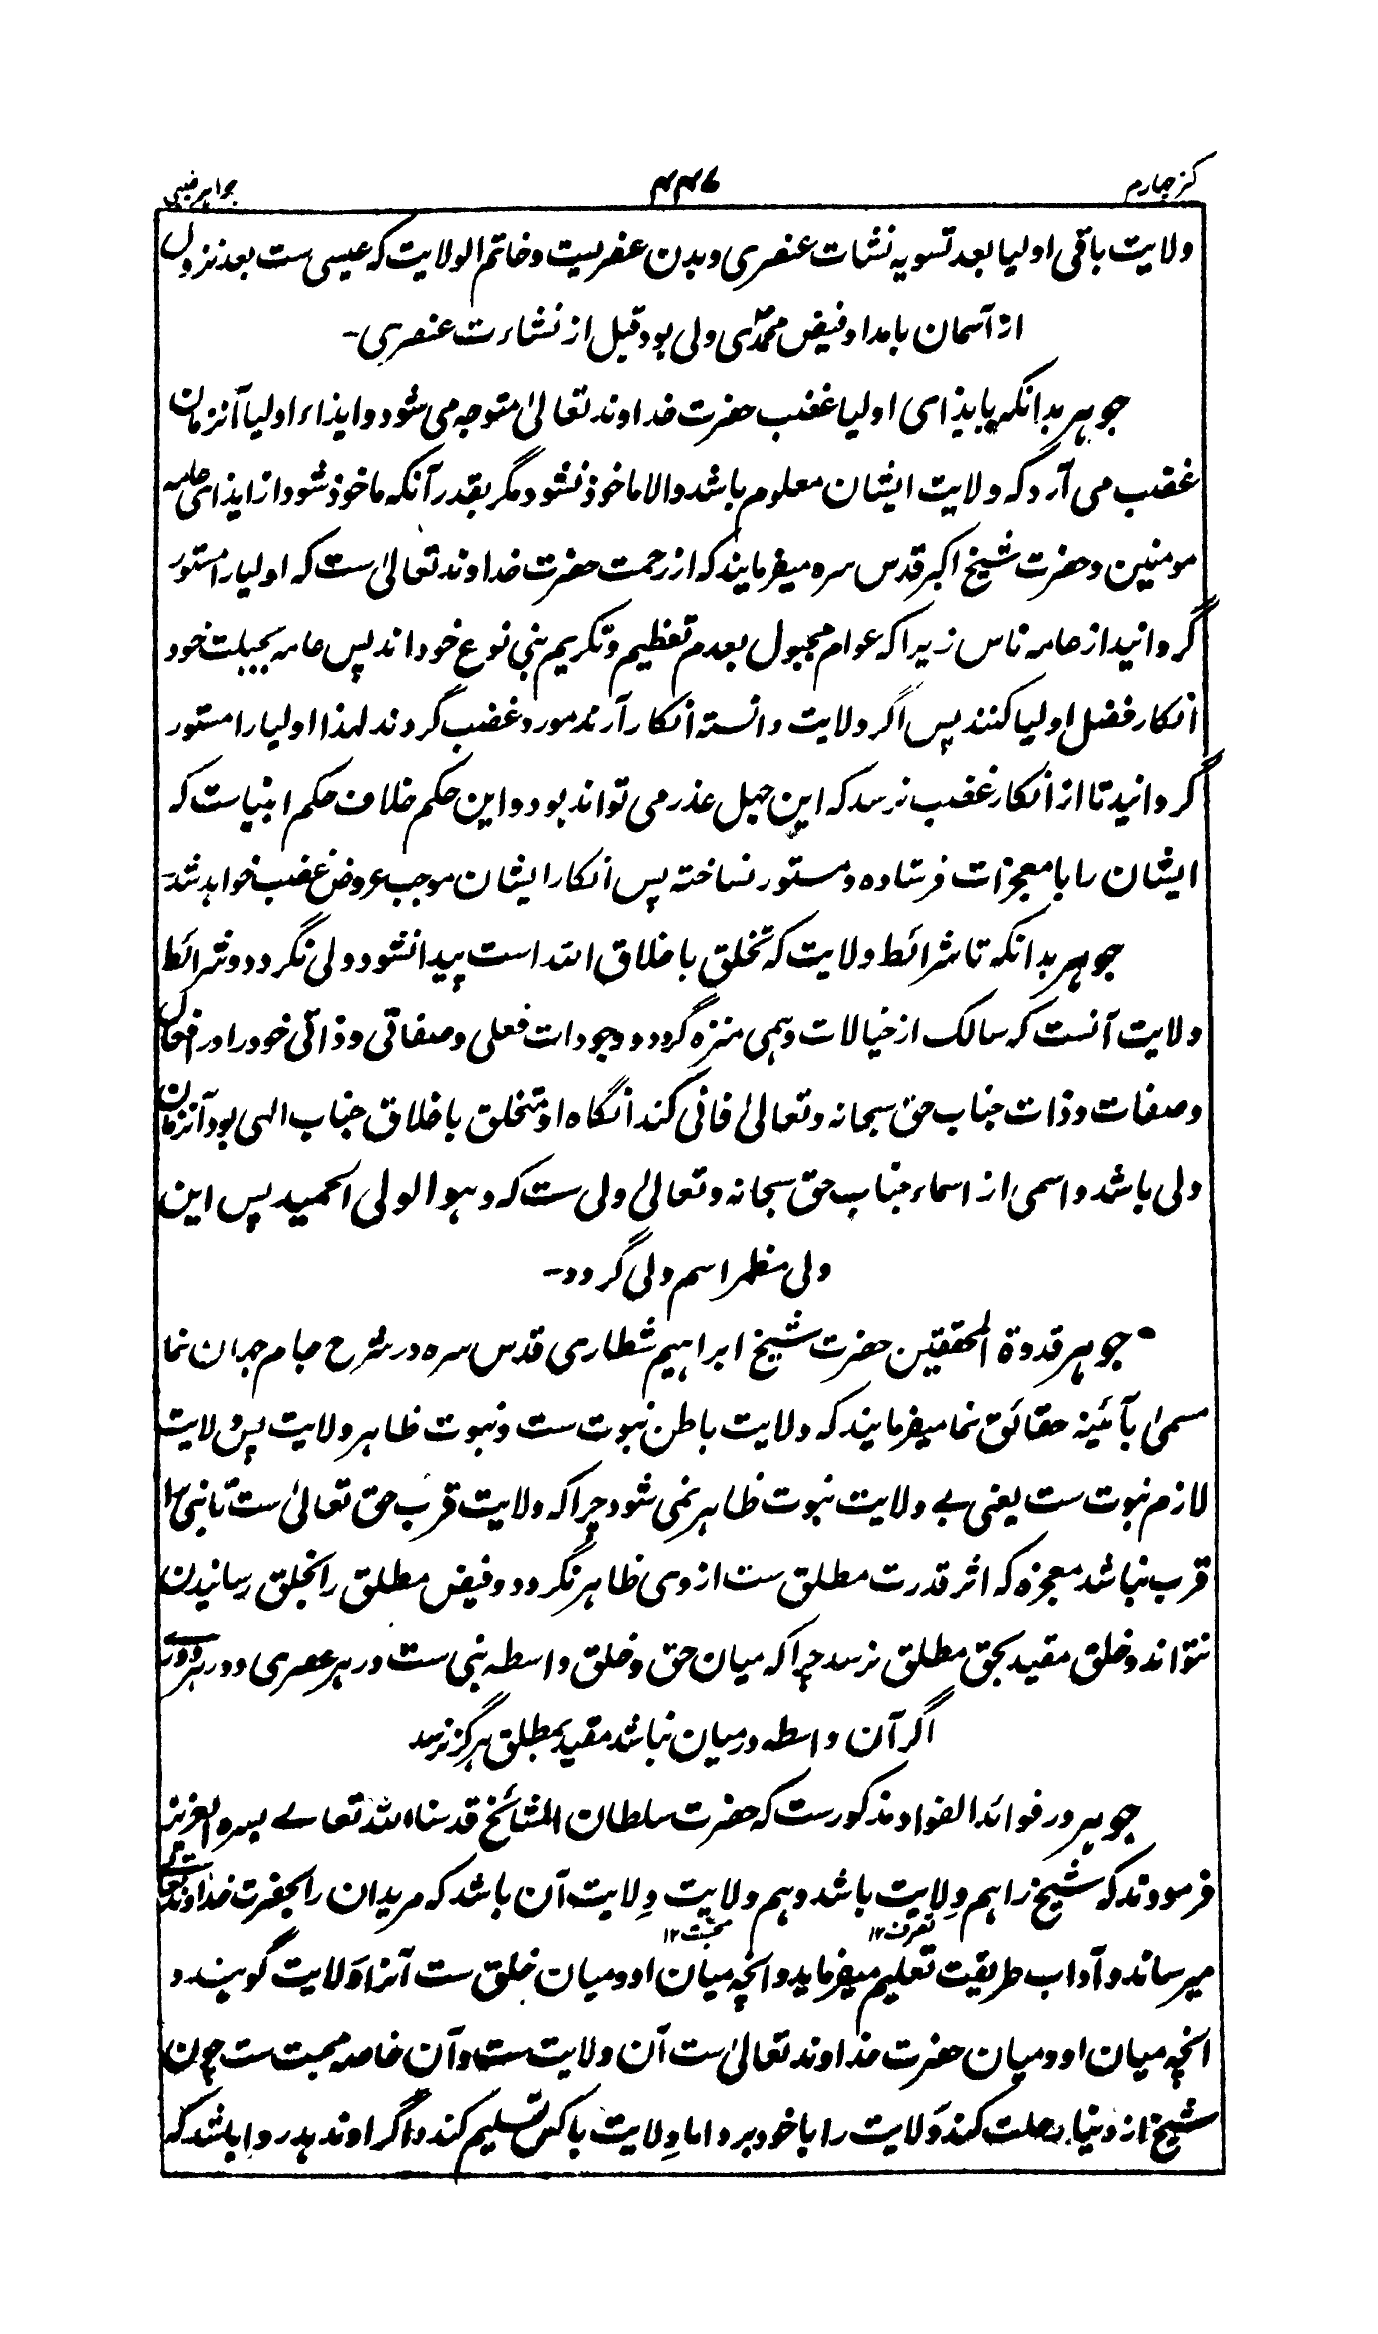 کنز چهارم ۴۴۷ جواهر غیبی
ولایت باقی اولیا بعد تسویه نشات عنصری و بدن عنصریست و خاتم الولایت که عیسی ست بعد نزول
از آسمان بامداد فیض محمدی ولی بود قبل از نشاءت عنصری-
جوهر بدانکه بایذای اولیا غضب حضرت خداوند تعالیٰ متوجه می شود و ایذاء اولیا آنزمان
غضب می آرد گه ولایت ایشان معلوم باشد والا ماخوذ نشود مگر بقدر آنکه ماخوذ شود از ایذای عامه
مومنین و حضرت شیخ اکبر قدس سره میفرمایند که از رحمت حضرت خداوند تعالیٰ ست که اولیا را مستور
گردانید از عامه ناس زیرا که عوام مجبول بعدم تعظیم و تکریم بنی نوع خود اند پس عامه بجبلت خود
انکار فضل اولیا کنند پس اگر ولایت دانسته انکار آرند مورد غضب گردند لهذا اولیا را مستور
گردانید تا از انکار غضب نرسد که این جهل عذر می تواند بود و این حکم خلاف حکم انبیاست که
ایشان را با معجزات فرستاده و مستور نساخته پس انکار ایشان موجب عروض غضب خواهد شد-
جوهر بدانکه تا شرائط ولایت که تخلق باخلاق الله است پیدا نشود ولی نگردد و شرائط
ولایت آنست که سالک از خیالات وهمی منزه گردد و وجودات فعلی و صفاتی و ذاتی خود را در افعال
و صفات و ذات جناب حق سبحانه و تعالیٰ فانی کند آنگاه او متخلق باخلاق جناب الهی بود آنزمان
ولی باشد و اسمی از اسماء جناب حق سبحانه و تعالیٰ ولی ست که و هو الولی الحمید پس این
ولی مظهر اسم ولی گردد-
جوهر قدوة المحققین حضرت شیخ ابراهیم شطاری قدس سره در شرح جام جهان نما
مسمیٰ بآئینه حقائق نما میفرمایند که ولایت باطن نبوت ست و نبوت ظاهر ولایت پس ولایت
لازم نبوت ست یعنی بے ولایت نبوت ظاهر نمی شود چرا که ولایت قرب حق تعالیٰ ست تا نبی را
قرب نباشد معجزه که اثر قدرت مطلق ست از وی ظاهر نگردد و فیض مطلق را بخلق رسانیدن
نتواند و خلق مقید بحق مطلق نرسد چرا که میان حق و خلق واسطه نبی ست در هر عصری و در هر دوری
اگر آن واسطه درمیان نباشد مقید بمطلق هرگز نرسد
جوهر در فوائد الفواد مذکورست که حضرت سلطان المشائخ قدسنا الله تعالے بسره العزیز
فرمودند که شیخ را هم وِلایت باشد و هم وَلایت وِلایت آن باشد که مریدان را بحضرت خداوند تعالے
تصرف ۱۲ محبت ۱۲
میرساند و آداب طریقت تعلیم میفرماید و انچه میان او و میان خلق ست آنرا وَلایت گویند و
انچه میان او و میان حضرت خداوند تعالیٰ ست آن ولایت ست و آن خاصه محبت ست چون
شیخ از دنیا رحلت کند وَلایت را با خود برد اما وِلایت باکس تسلیم کند و اگر او ندهد روا باشد که